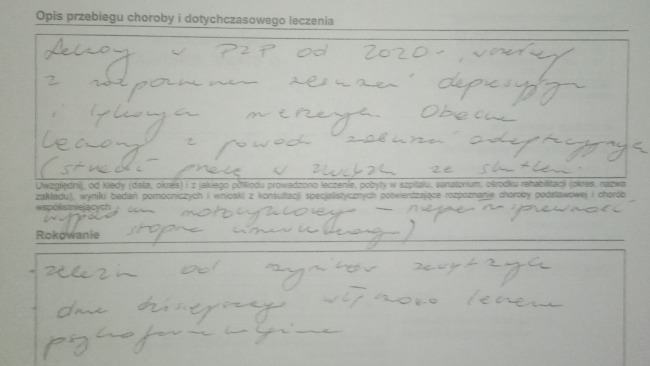 Opis przebiegu choroby i dotychczasowego leczenia
Leczony w PZP od 2020 r., wcześniej
z rozpoznaniem zaburzeń depresyjnych
i lękowych mieszanych. Obecnie
leczony z powodu zaburzeń adaptacyjnych
(stracił pracę w związku ze skutkami
Uwzględnij, od kiedy (data, okres) i z jakiego powodu prowadzono leczenie, pobyty w szpitalu, sanatorium, ośrodku rehabilitacji (okres, nazwa
zakładu), wyniki badań pomocniczych i wnioski z konsultacji specjalistycznych potwierdzające rozpoznanie choroby podstawowej i chorób
współistniejących
wypadku motocyklowego – niepełnosprawność
stopnia umiarkowanego)
Rokowanie
- zależy od czynników zewnętrznych
- dnia dzisiejszego włączono leczenie
psychofarmakologiczne